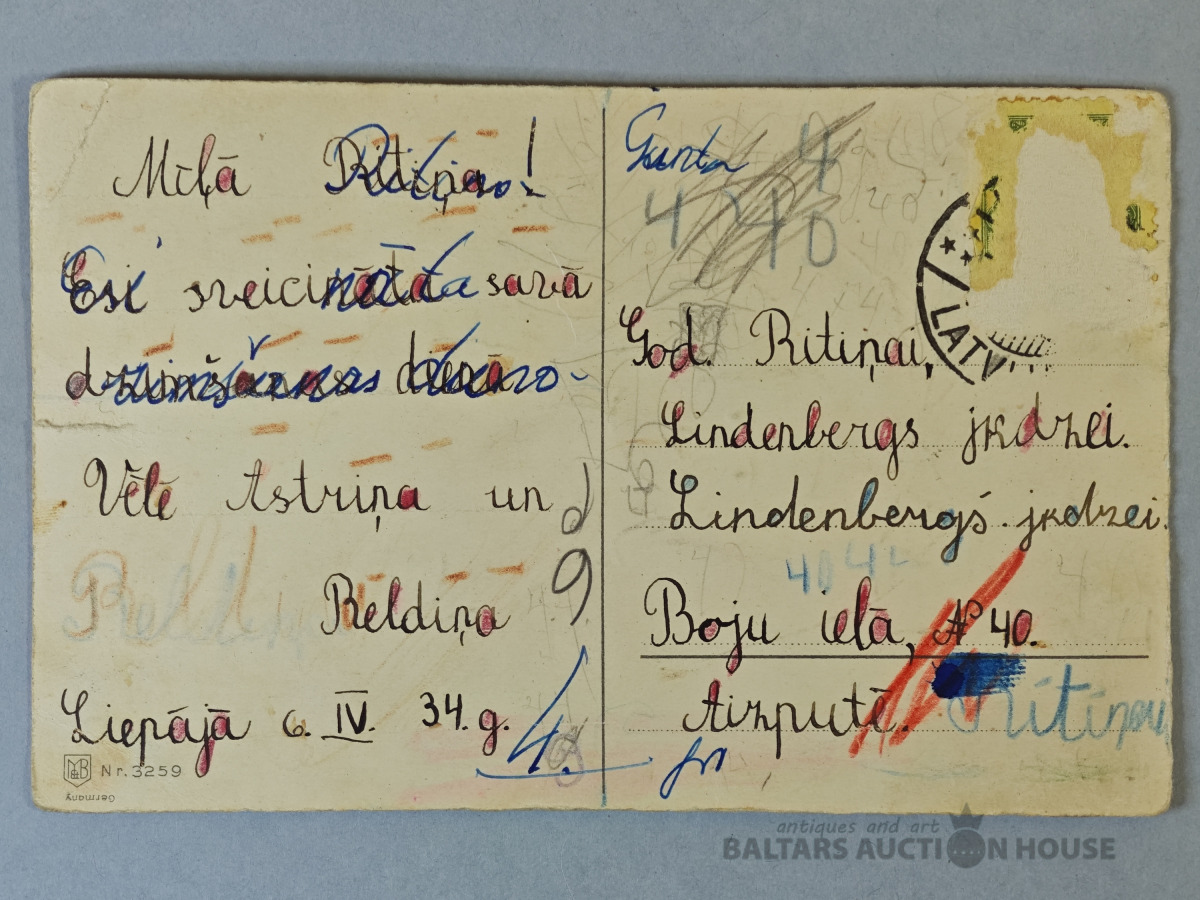 Mīļā Ritiņa!
Esi sveicināta savā
dzimšanas dienā
Vēlē Astriņa un
Reldiņa
Liepājā 6. IV. 34. g.
4.
Nr. 3259
Germany
4
4 40
God. Ritiņai,
Lindenbergs jkdzei.
Lindenbergs jkdzei.
Boju ielā, № 40.
Aizputē.
Ritiņai
LATV
antiques and art
BALTARS AUCTION HOUSE